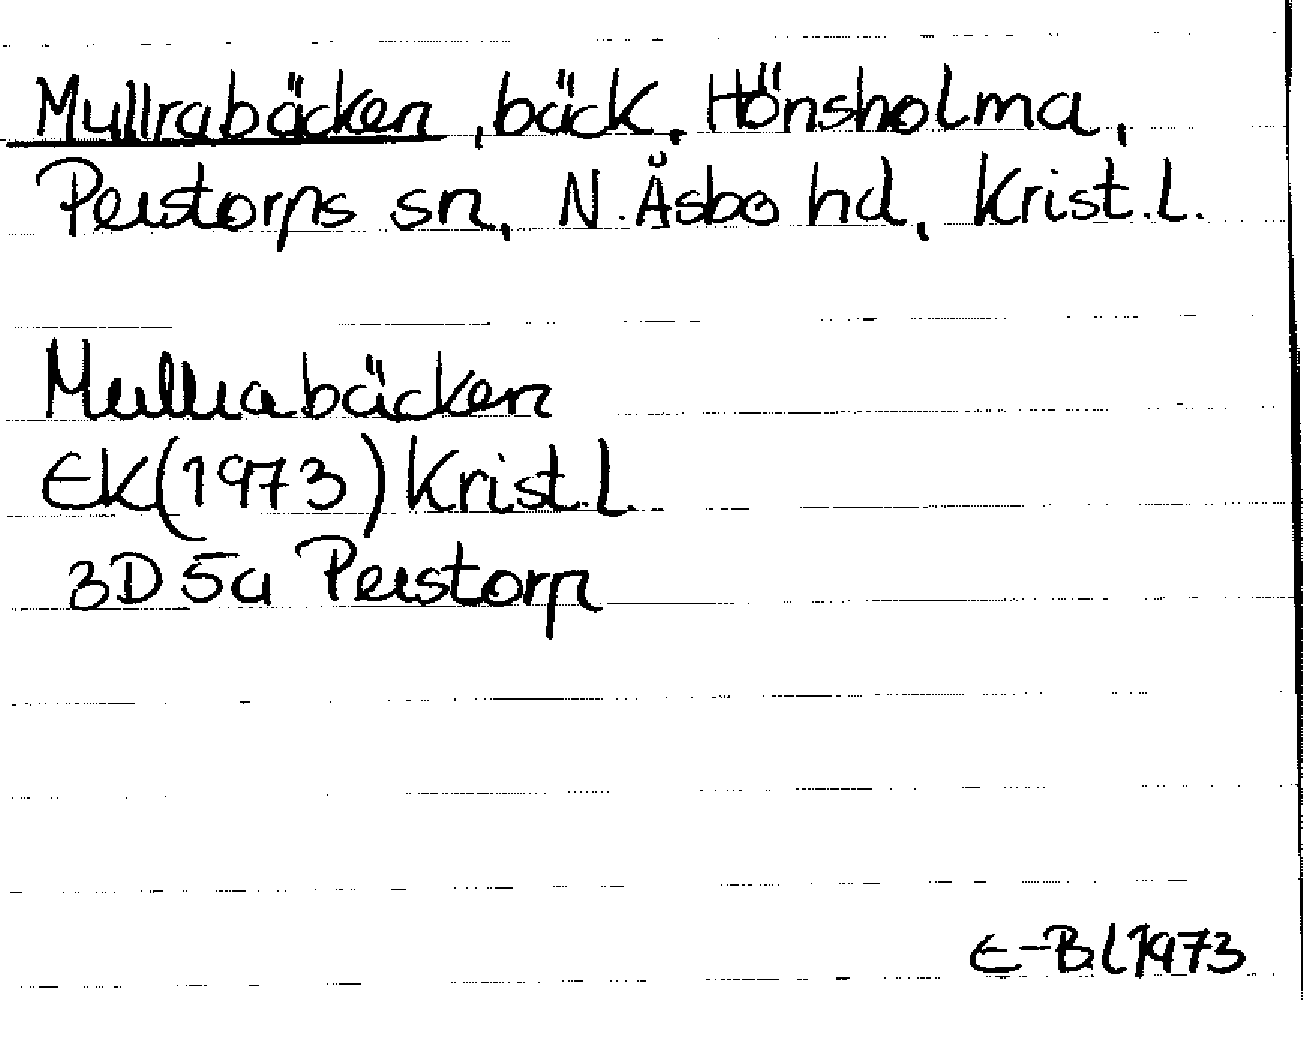 Myllrabäcken, bäck, Hönsholma,
Perstorps sn, N. Åsbo hd, Krist. L.
Mullrabäcken
EK (1973) Krist. L
3D 5a Perstorp
E-BL 1973